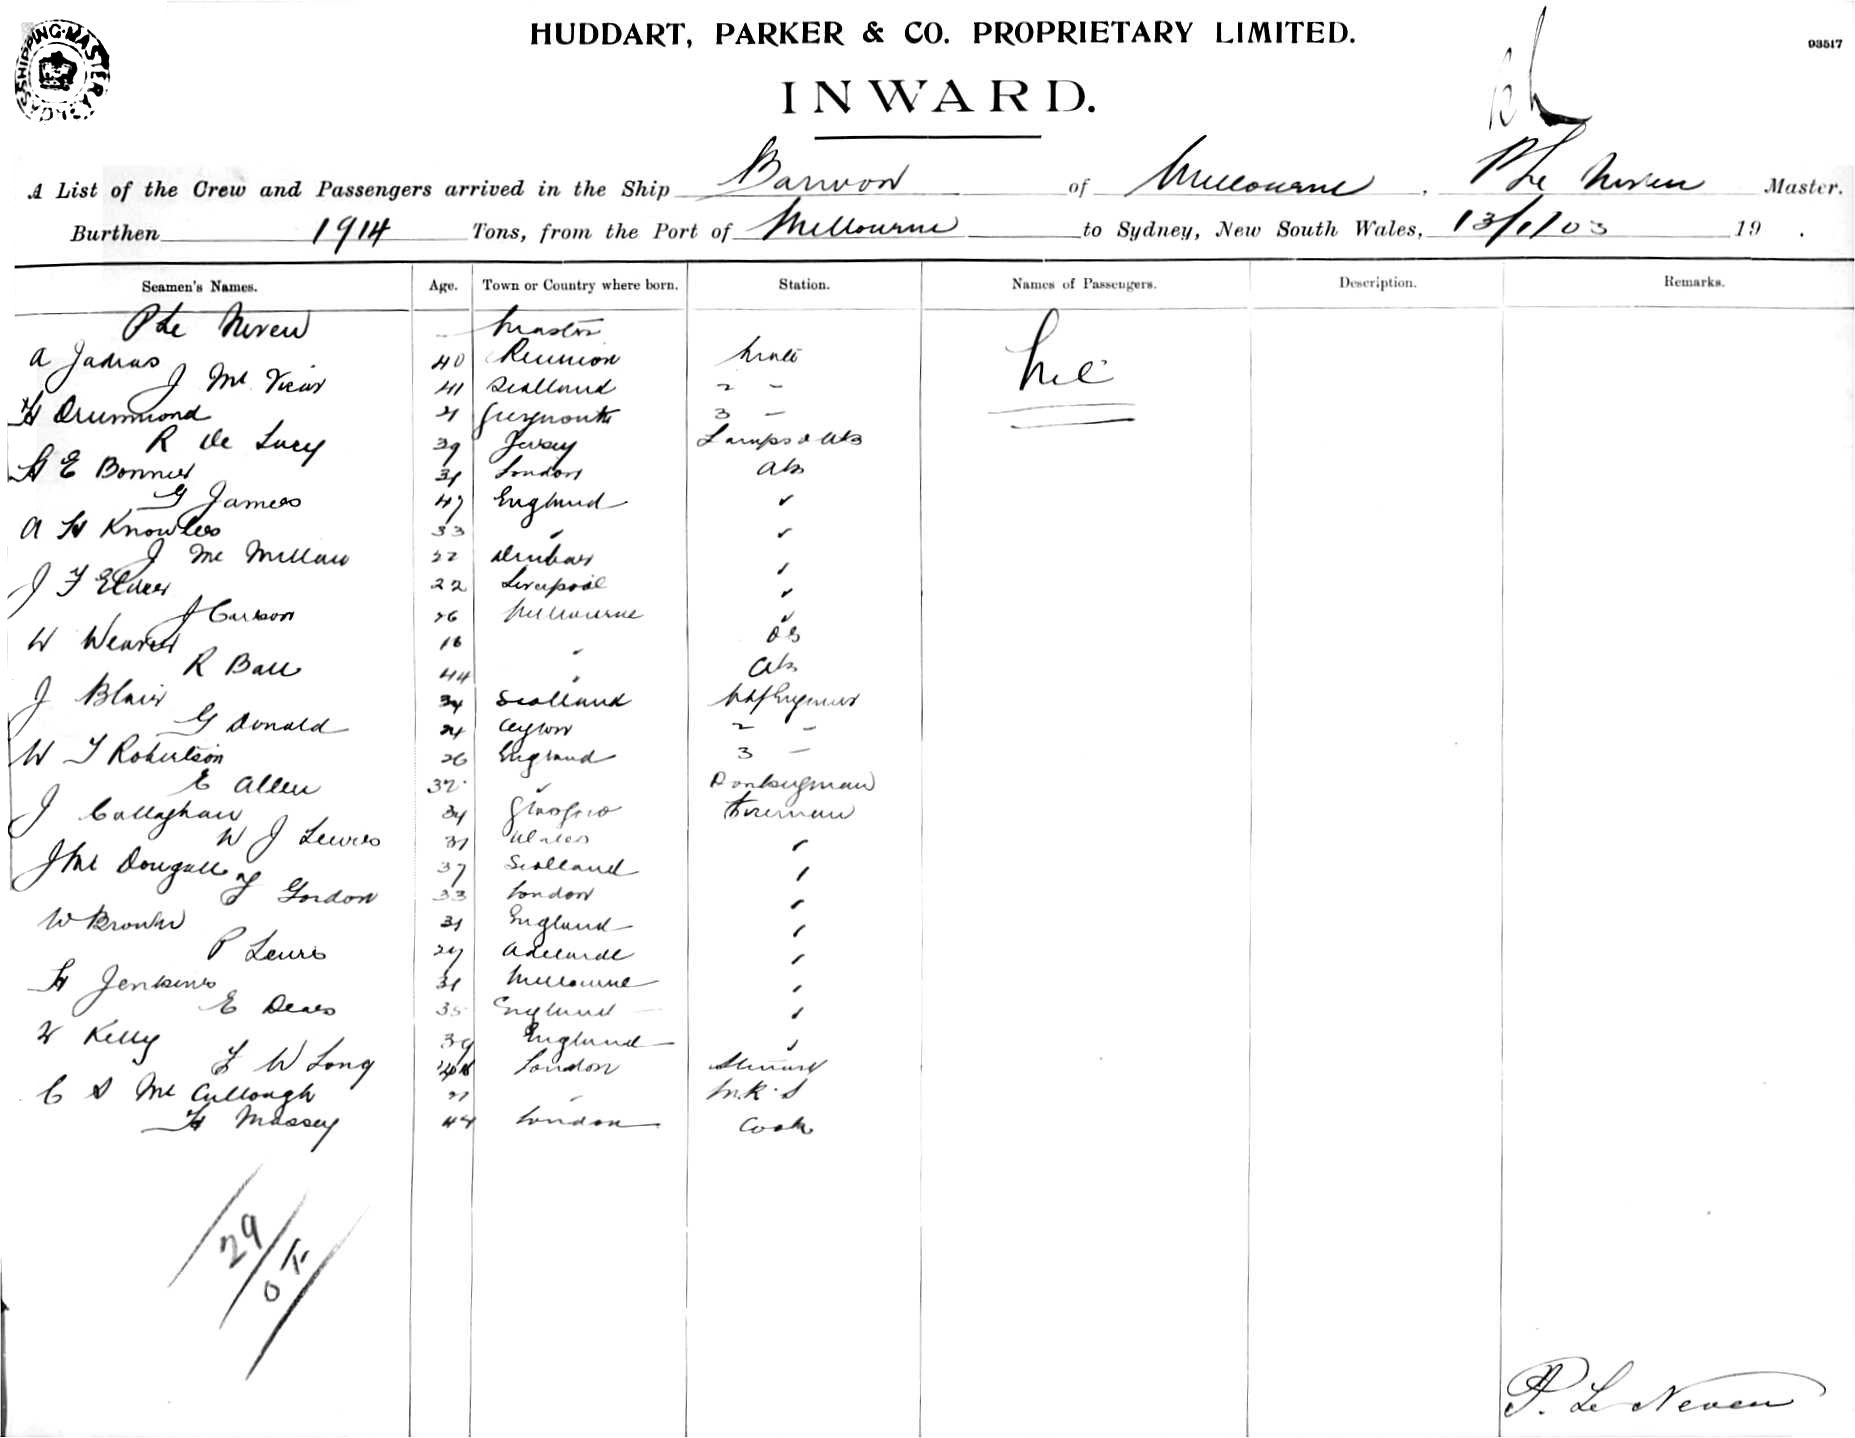 HUDDART, PARKER & CO. PROPRIETARY LIMITED.
93517
SHIPPING MASTER
INWARD.
A List of the Crew and Passengers arrived in the Ship Barwon of Melbourne, P Le Neven Master.
Burthen 1914 Tons, from the Port of Melbourne to Sydney, New South Wales, 13/1/03 19 .
Seamen's Names. Age. Town or Country where born. Station. Names of Passengers. Description. Remarks.
P Le Neven Master Nil
A Jadras 40 Reunion Mate
J Mc Vicar 41 Scotland 2 -
H Drummond Greymouth 3 -
R De Lucy 39 Jersey Lamps & AB
H E Bonner 31 London AB
G James 47 England "
A H Knowles 33 " "
J Mc Millan 22 Dunbar "
J F Elder 22 Liverpool "
J Carson 26 Melbourne "
W Weaver 18 " OS
R Ball 44 " AB
J Blair 34 Scotland Chf Engineer
G Donald 24 Ceylon 2 -
W T Robertson 26 England 3 -
E Allen 32 " Donkeyman
J Callaghan 34 Glasgow Fireman
W J Lewis 31 Wales "
J Mc Dougall 37 Scotland "
F Gordon 33 London "
W Brown 31 England "
P Lewis 27 Adelaide "
H Jenkins 31 Melbourne "
E Dears 35 England "
W Kelly 39 England "
F W Long London Steward
C S Mc Cullough 27 " M.R.S
H Massey 44 London Cook
29
P. Le Neven